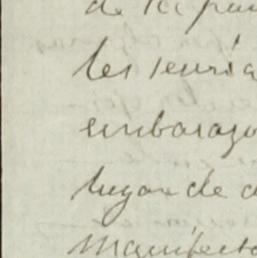 de la pa
les tenia
embarazo
lugar de a
manifesta